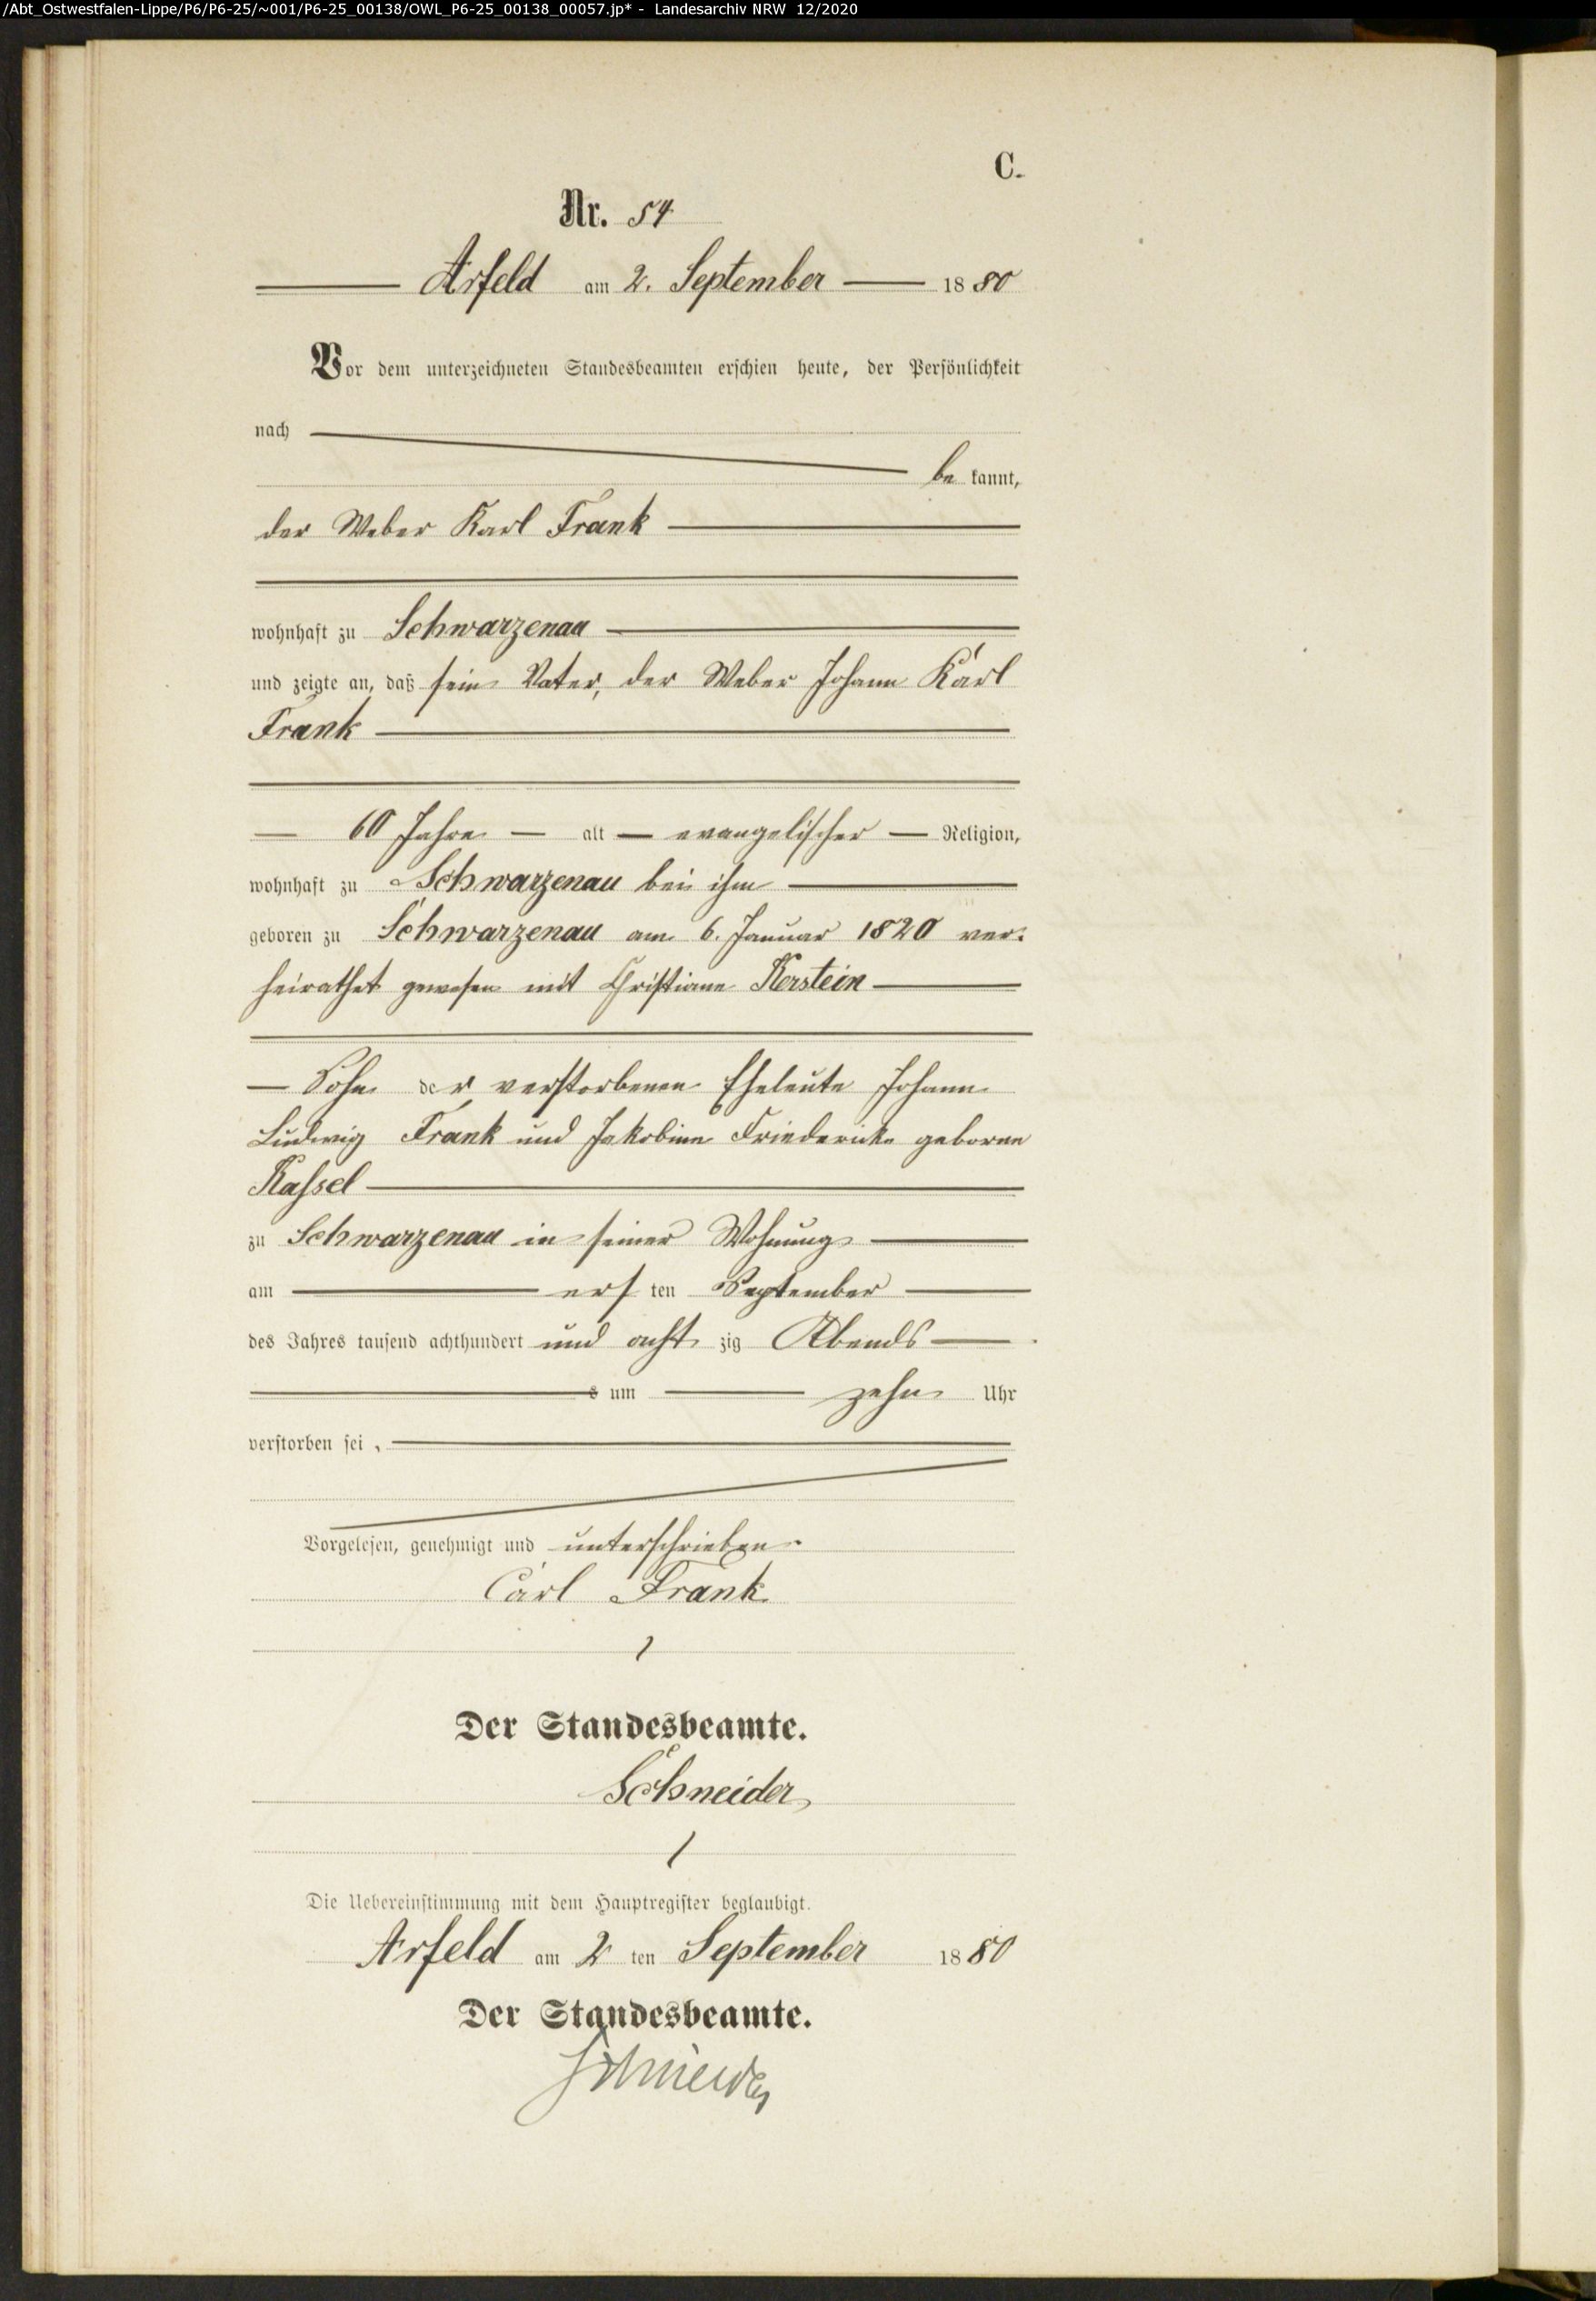 /Abt_Ostwestfalen-Lippe/P6/P6-25/~001/P6-25_00138/OWL_P6-25_00138_00057.jp* - Landesarchiv NRW 12/2020
C.
Nr. 54
Arfeld am 2. September 1880
Vor dem unterzeichneten Standesbeamten erschien heute, der Persönlichkeit
nach
be kannt,
der Weber Karl Frank
wohnhaft zu Schwarzenau
und zeigte an, daß sein Vater, der Weber Johann Karl
Frank
60 Jahre alt evangelischer Religion,
wohnhaft zu Schwarzenau bei ihm
geboren zu Schwarzenau am 6. Januar 1820 ver-
heirathet gewesen mit Christiane Kerstein
Sohn der verstorbenen Eheleute Johann
Ludwig Frank und Jakobine Friedericke geborne
Kassel
zu Schwarzenau in seiner Wohnung
am ersten September
des Jahres tausend achthundert und achtzig Abends
s um zehn Uhr
verstorben sei.
Vorgelesen, genehmigt und unterschrieben
Carl Frank
Der Standesbeamte.
Schneider
Die Uebereinstimmung mit dem Hauptregister beglaubigt.
Arfeld am 2 ten September 1880
Der Standesbeamte.
Schneider